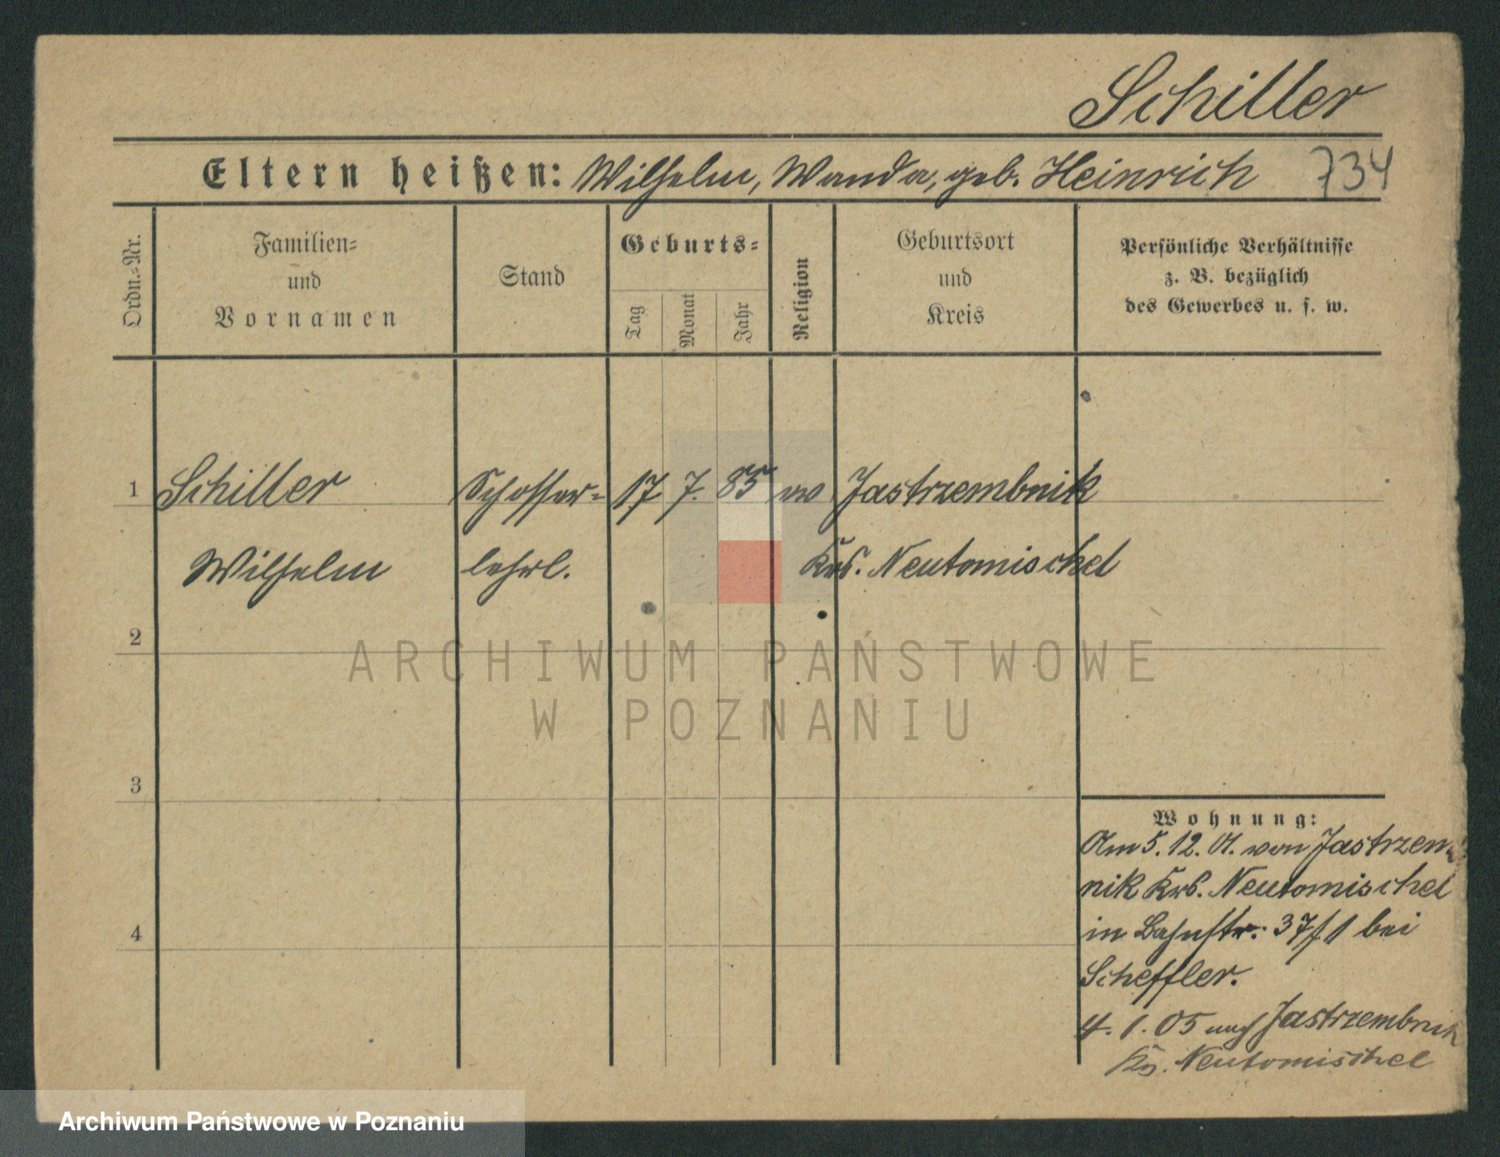 Schiller
Eltern heißen: Wilhelm, Wanda, geb. Heinrich 734
Ordn.-Nr.
Familien-
und
Vornamen
Stand
Geburts-
Tag
Monat
Jahr
Religion
Geburtsort
und
Kreis
Persönliche Verhältnisse
z. B. bezüglich
des Gewerbes u. s. w.
1 Schiller Schosser- 17 7. 85 ev Jastrzembnik
Wilhelm lehrl. Krs. Neutomischel
2
3
4
Wohnung:
Am 5. 12. 01. von Jastrzem
nik Krs. Neutomischel
in Bahnstr. 37/1 bei
Scheffler.
4. 1. 05 nach Jastrzembnik
Krs. Neutomischel
ARCHIWUM PAŃSTWOWE
W POZNANIU
Archiwum Państwowe w Poznaniu